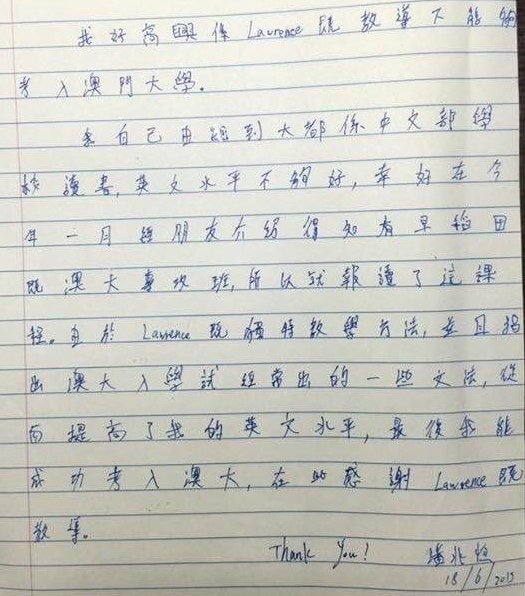 我好高興係Lawrence既教導下能夠
考入澳門大學。
我自己由細到大都係中文部學
校讀書,英文水平不夠好,幸好在今
年一月經朋友介紹得知有早稻田
既澳大專攻班,所以就報讀了這課
程。由於Lawrence既獨特教學方法,並且指
出澳大入學試經常出的一些文法,從
而提高了我的英文水平,最後我能
成功考入澳大,在此感謝Lawrence既
教導。
Thank You! 潘兆恒
18/6/2015